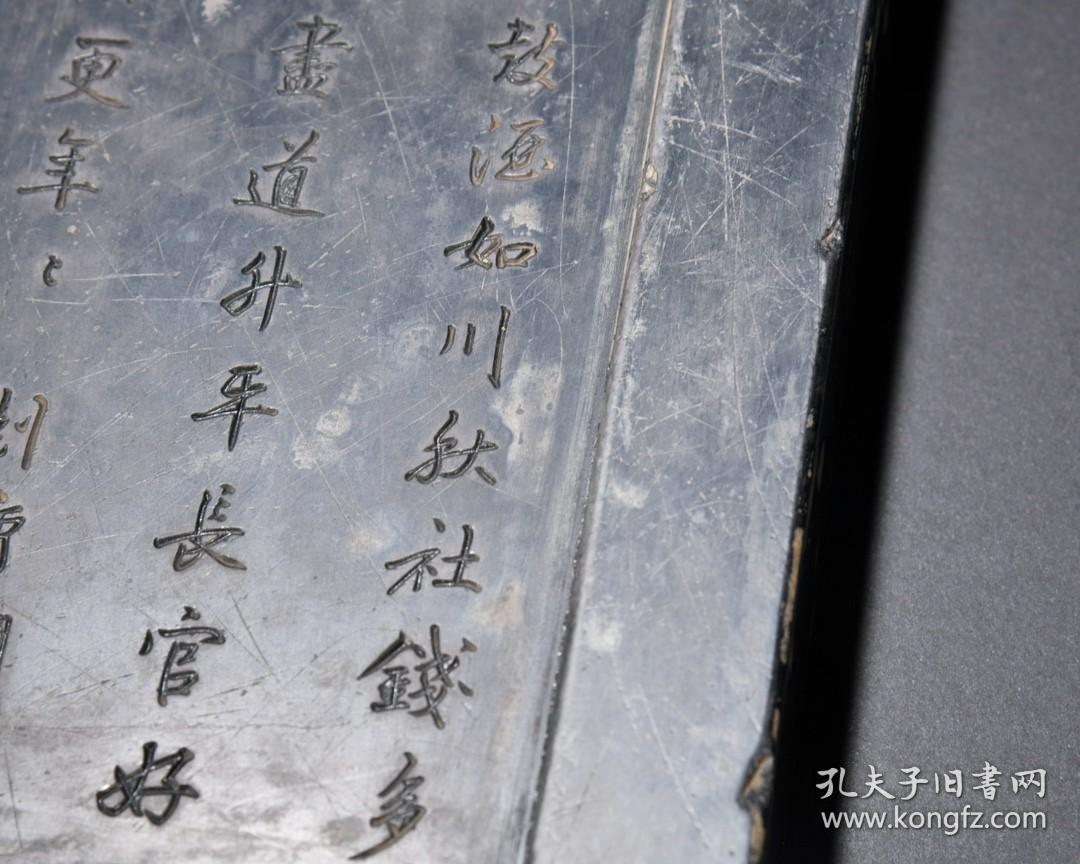 酒如川秋社錢多
盡道升平長官好
更年〻
孔夫子旧書网
www.kongfz.com